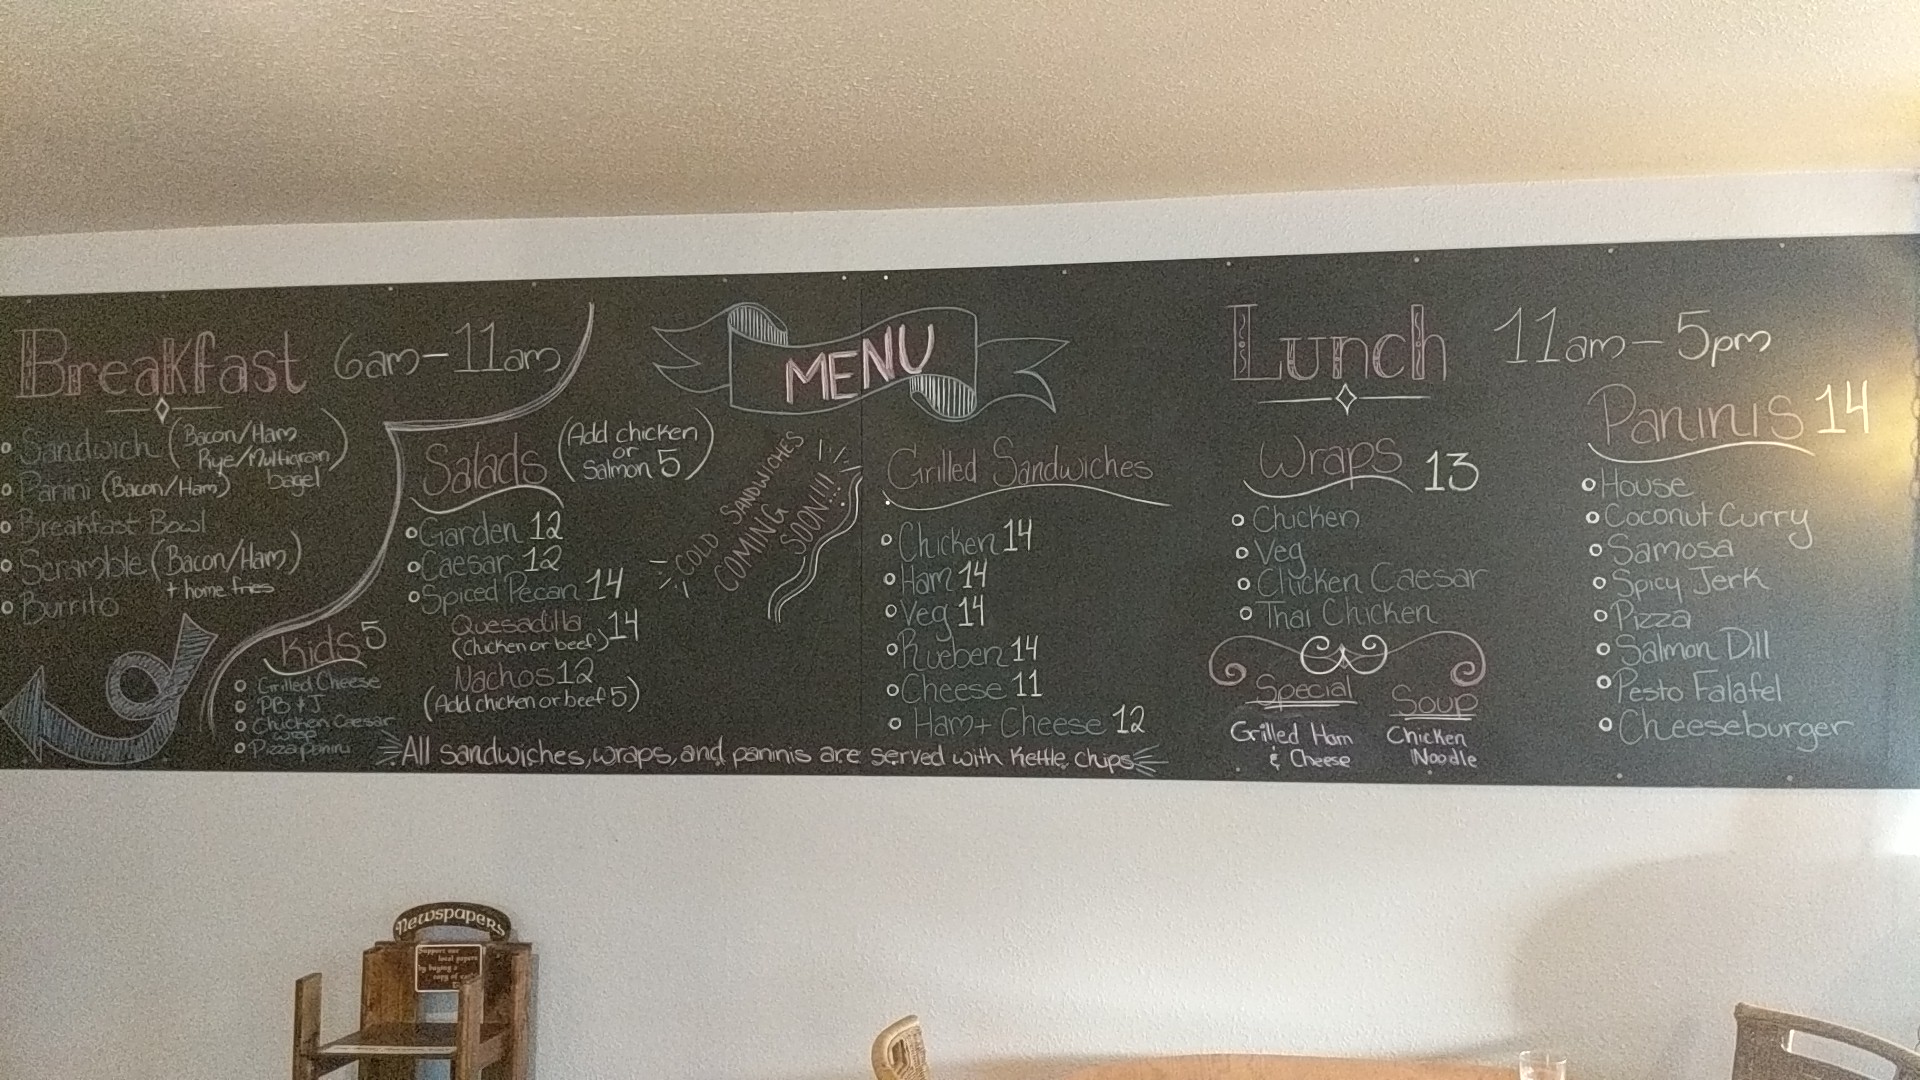 Breakfast 6am-11am
Sandwich (Bacon/Ham
Rye/Multigrain)
bagel
Panini (Bacon/Ham)
Breakfast Bowl
Scramble (Bacon/Ham)
+ home fries
Burrito
Kids 5
Grilled Cheese
PB & J
Chicken Caesar
wrap
Pizza panini
Salads (Add chicken
or
Salmon 5)
Garden 12
Caesar 12
Spiced Pecan 14
Quesadilla 14
(Chicken or beef)
Nachos 12
(Add chicken or beef 5)
MENU
COLD SANDWICHES
COMING
SOON!!!
Grilled Sandwiches
Chicken 14
Ham 14
Veg 14
Rueben 14
Cheese 11
Ham + Cheese 12
All sandwiches, wraps, and paninis are served with Kettle chips
Lunch 11am-5pm
Wraps 13
Chicken
Veg
Chicken Caesar
Thai Chicken
Special
Grilled Ham
& Cheese
Soup
Chicken
Noodle
Paninis 14
House
Coconut Curry
Samosa
Spicy Jerk
Pizza
Salmon Dill
Pesto Falafel
Cheeseburger
Newspapers
Support our
local papers
by buying a
copy of